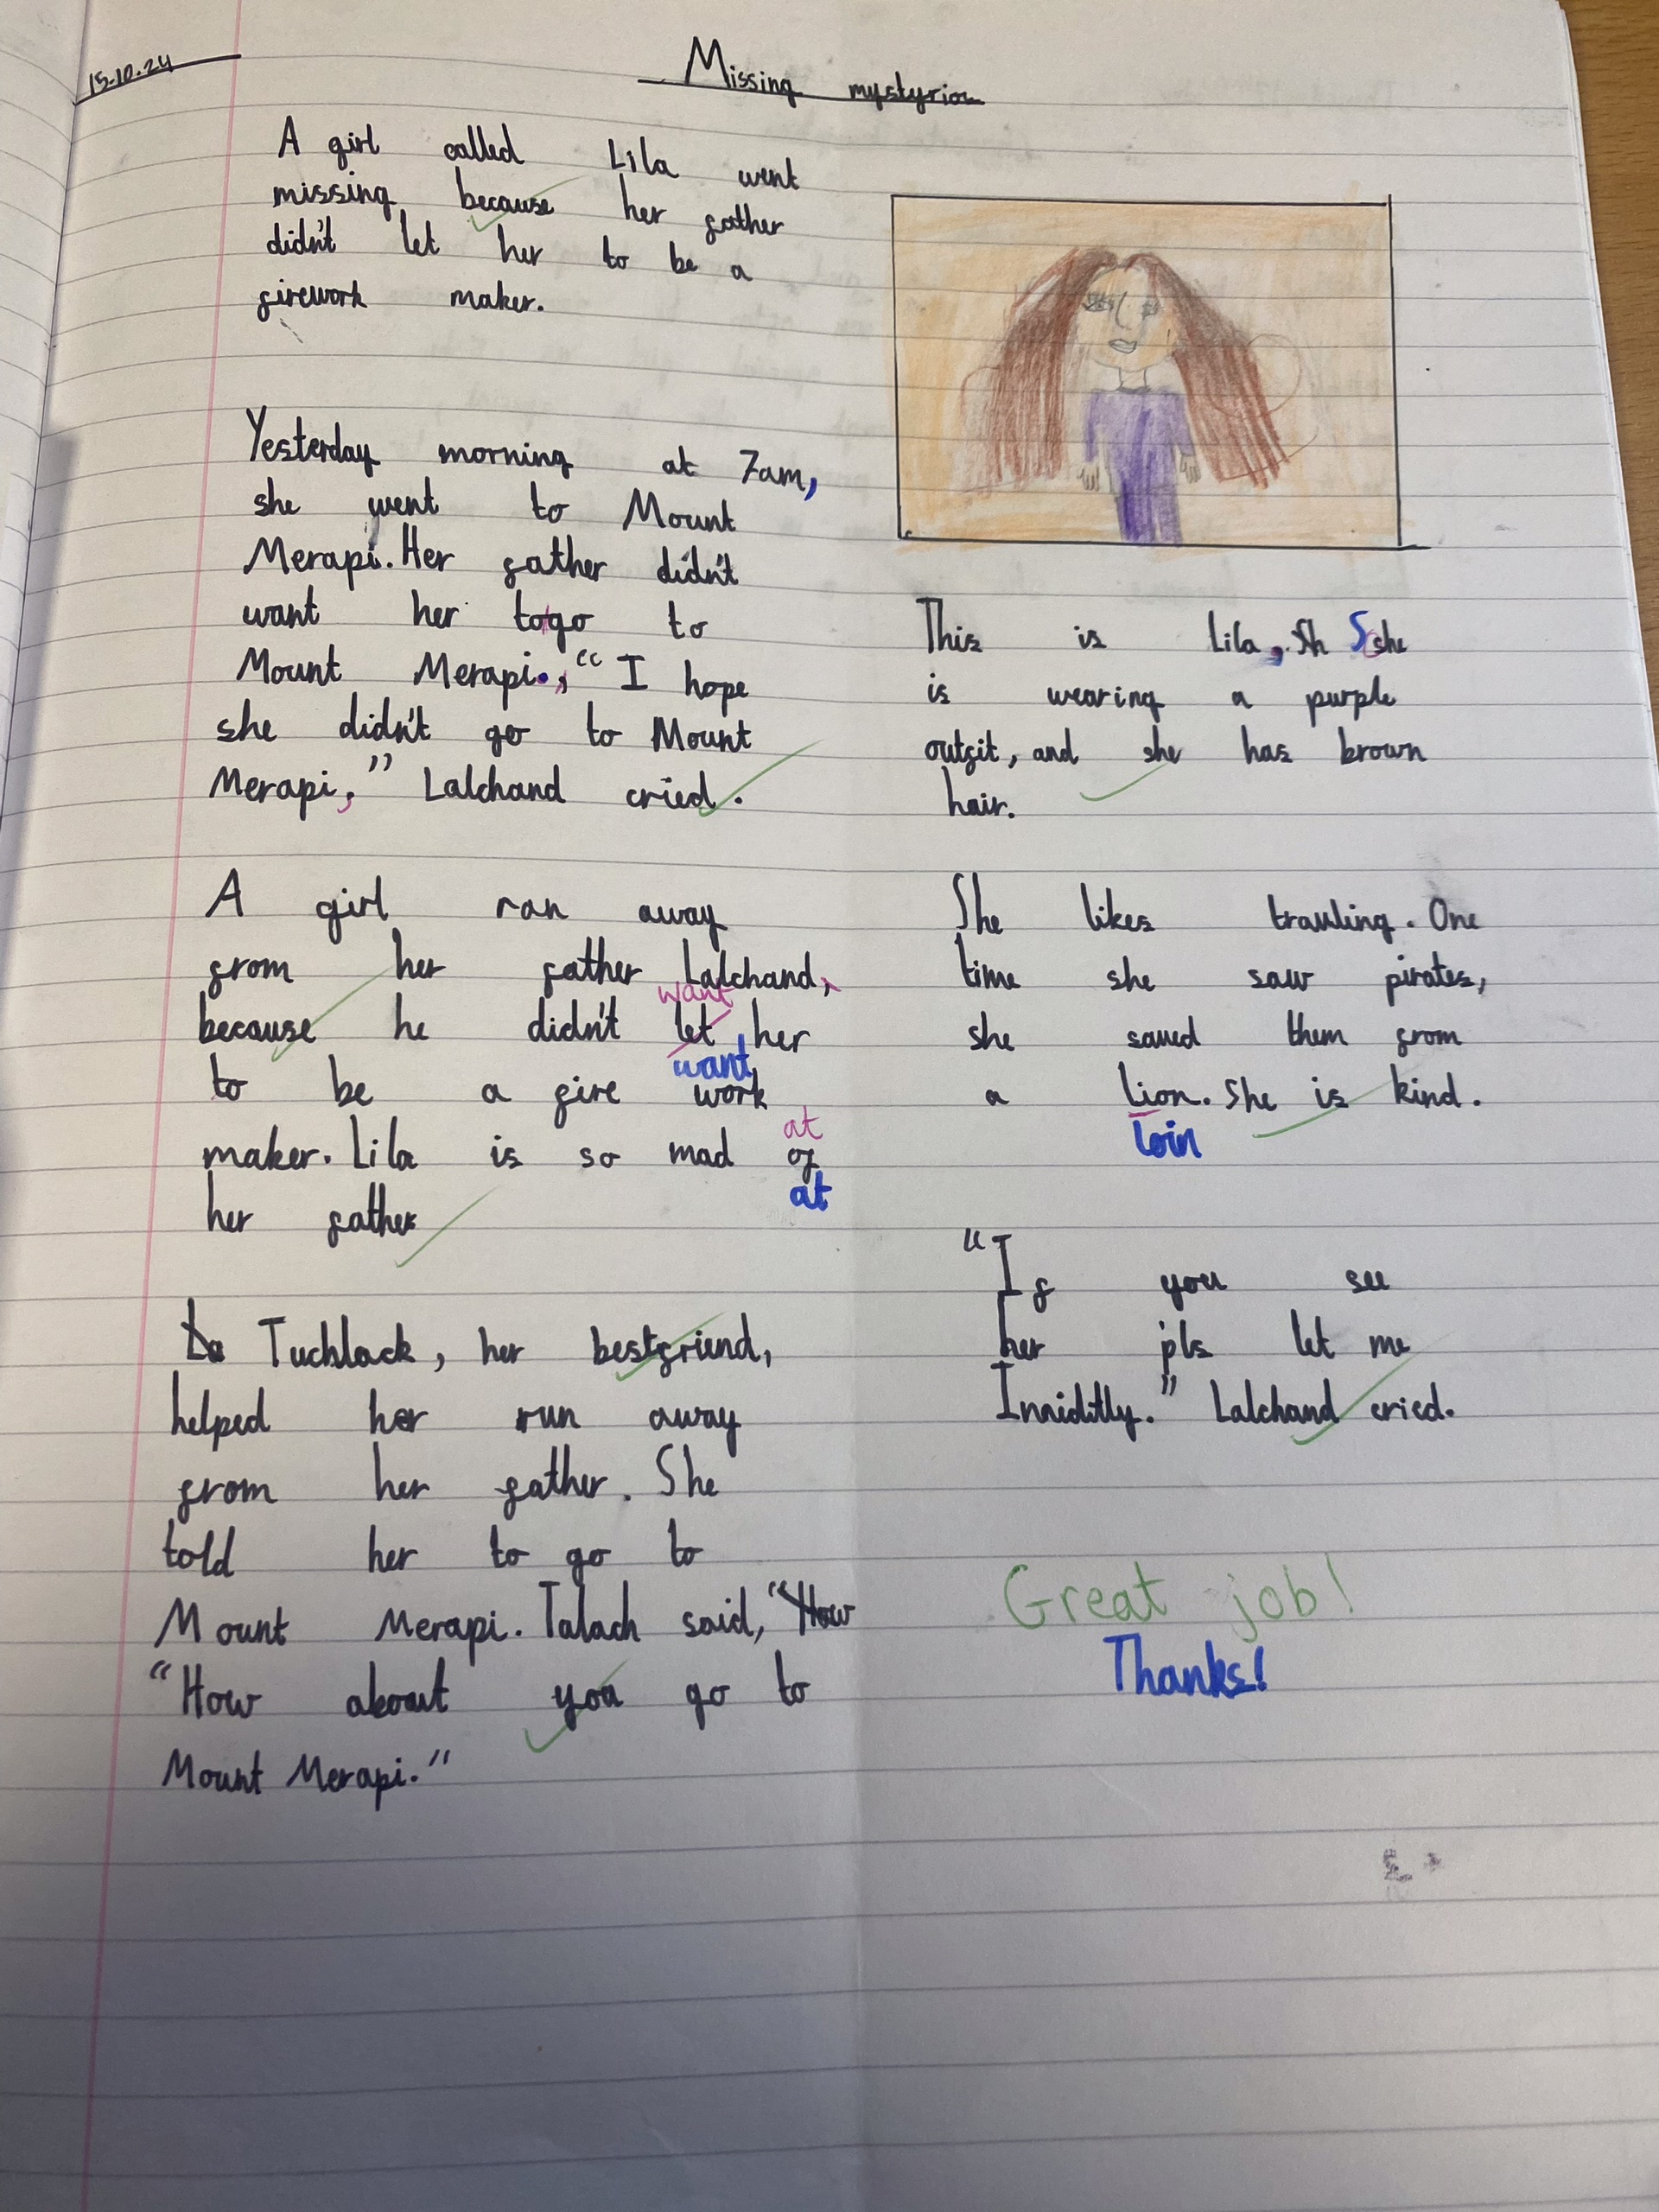 15.10.24
Missing mystyriou
A girl called Lila went
missing because her father
didn't let her to be a
firework maker.
Yesterday morning at 7am,
she went to Mount
Merapi. Her father didn't
want her to go to
Mount Merapi., “I hope
she didn't go to Mount
Merapi,” Lalchand cried.
A girl ran away
from her father Lalchand,
want
because he didn't let her
want
to be a fire work
at
maker. Lila is so mad of
at
her father
Tuchlack, her bestfriend,
helped her run away
from her father. She
told her to go to
Mount Merapi. Talach said, “How
“How about you go to
Mount Merapi.”
This is Lila,. Sh Sshe
is wearing a purple
outfit, and she has brown
hair.
She likes travling. One
time she saw pirates,
she saved them from
a Lion. She is kind.
Loin
“If you see
her pls let me
Inniditly.” Lalchand cried.
Great job!
Thanks!